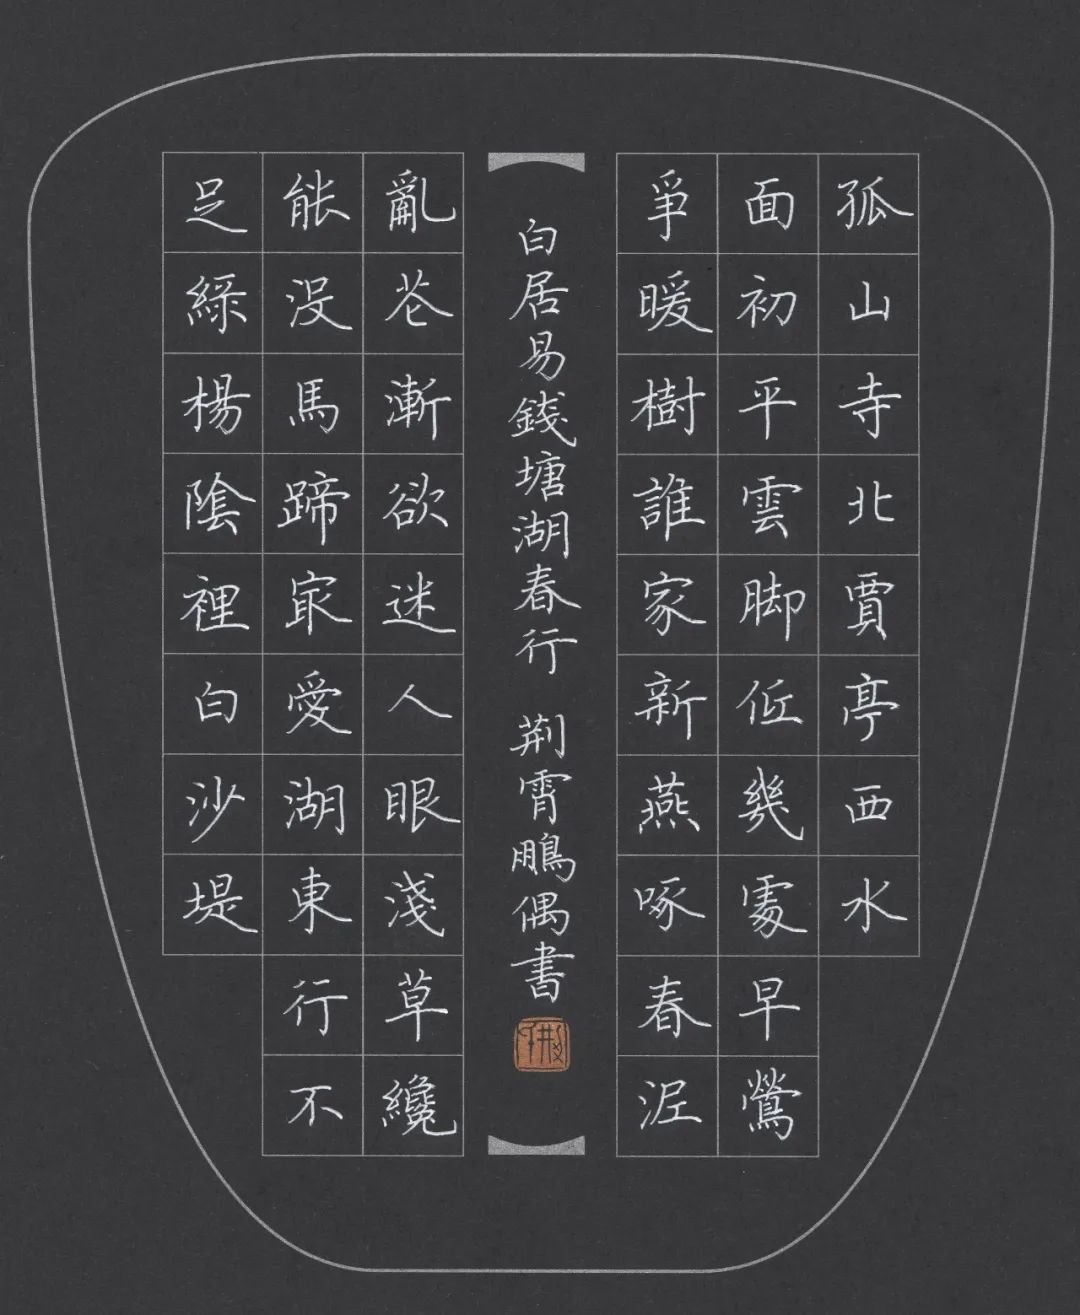 孤山寺北賈亭西水
面初平雲脚低幾處早鶯
爭暖樹誰家新燕啄春泥
白居易錢塘湖春行 荆霄鵬偶書
亂花漸欲迷人眼淺草纔
能没馬蹄最愛湖東行不
足綠楊陰裡白沙堤